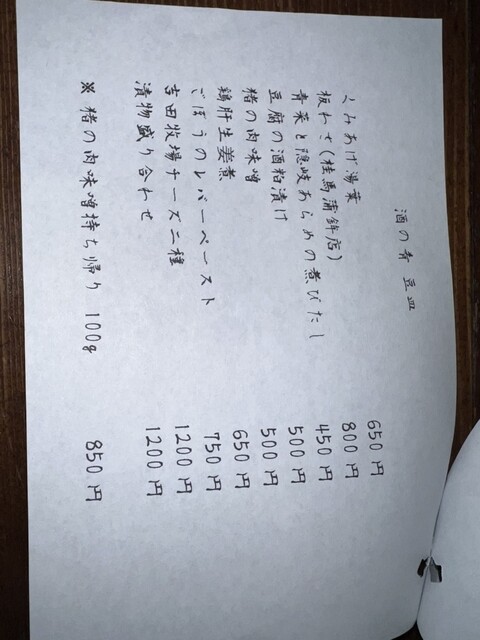 酒の肴 豆皿
くみあげ湯葉 650円
板わさ(桂馬蒲鉾店) 800円
青菜と隠岐あらめの煮びたし 450円
豆腐の酒粕漬け 500円
猪の肉味噌 500円
鶏肝生姜煮 650円
ごぼうのレバーペースト 750円
吉田牧場チーズ二種 1200円
漬物盛り合わせ 1200円
※ 猪の肉味噌持ち帰り 100g 850円